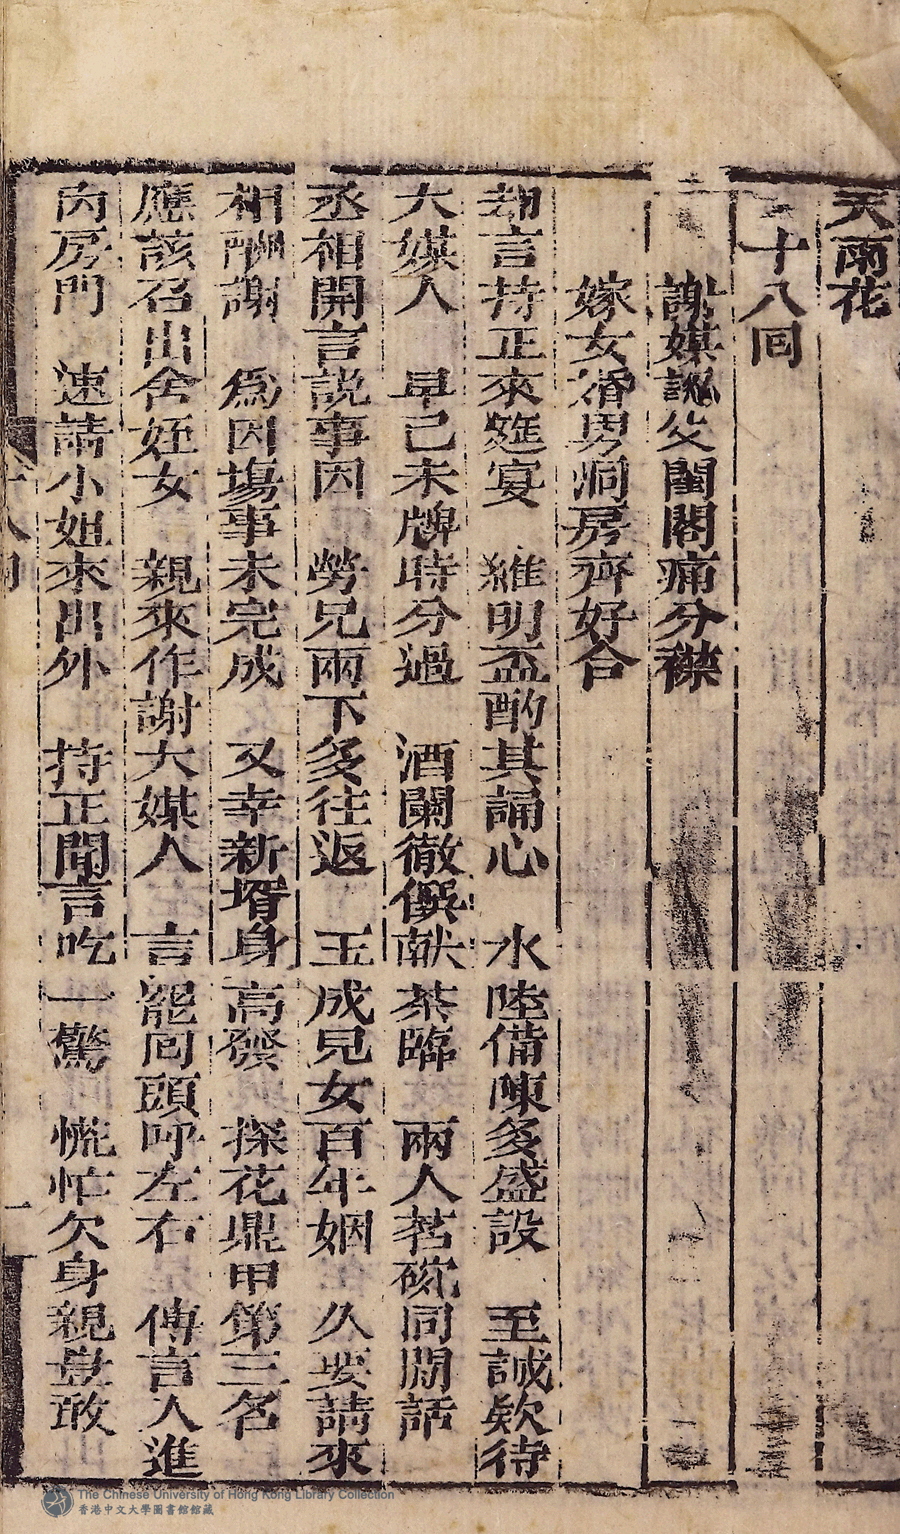 天雨花
十八囘
謝媒認父閨閣痛分襟
嫁女婚男洞房齊好合
却言持正來筵宴　維明盃酌其誦心　水陸備陳多盛設　至誠欵待
大媒人　早已未牌時分過　酒闌徹饌献茶臨　兩人茗碗同閒話
丞相開言説事因　勞兄兩下多往返　玉成兒女百年姻　久要請來
相酬謝　爲因塲事未完成　又幸新壻身高發　探花鼎甲第三名
應該召出舍姪女　親來作謝大媒人　言罷囘頭呼左右　傳言人進
內房門　速請小姐來出外　持正聞言吃一驚　慌忙欠身親豈敢
十八囘
一
The Chinese University of Hong Kong Library Collection
香港中文大學圖書館館藏